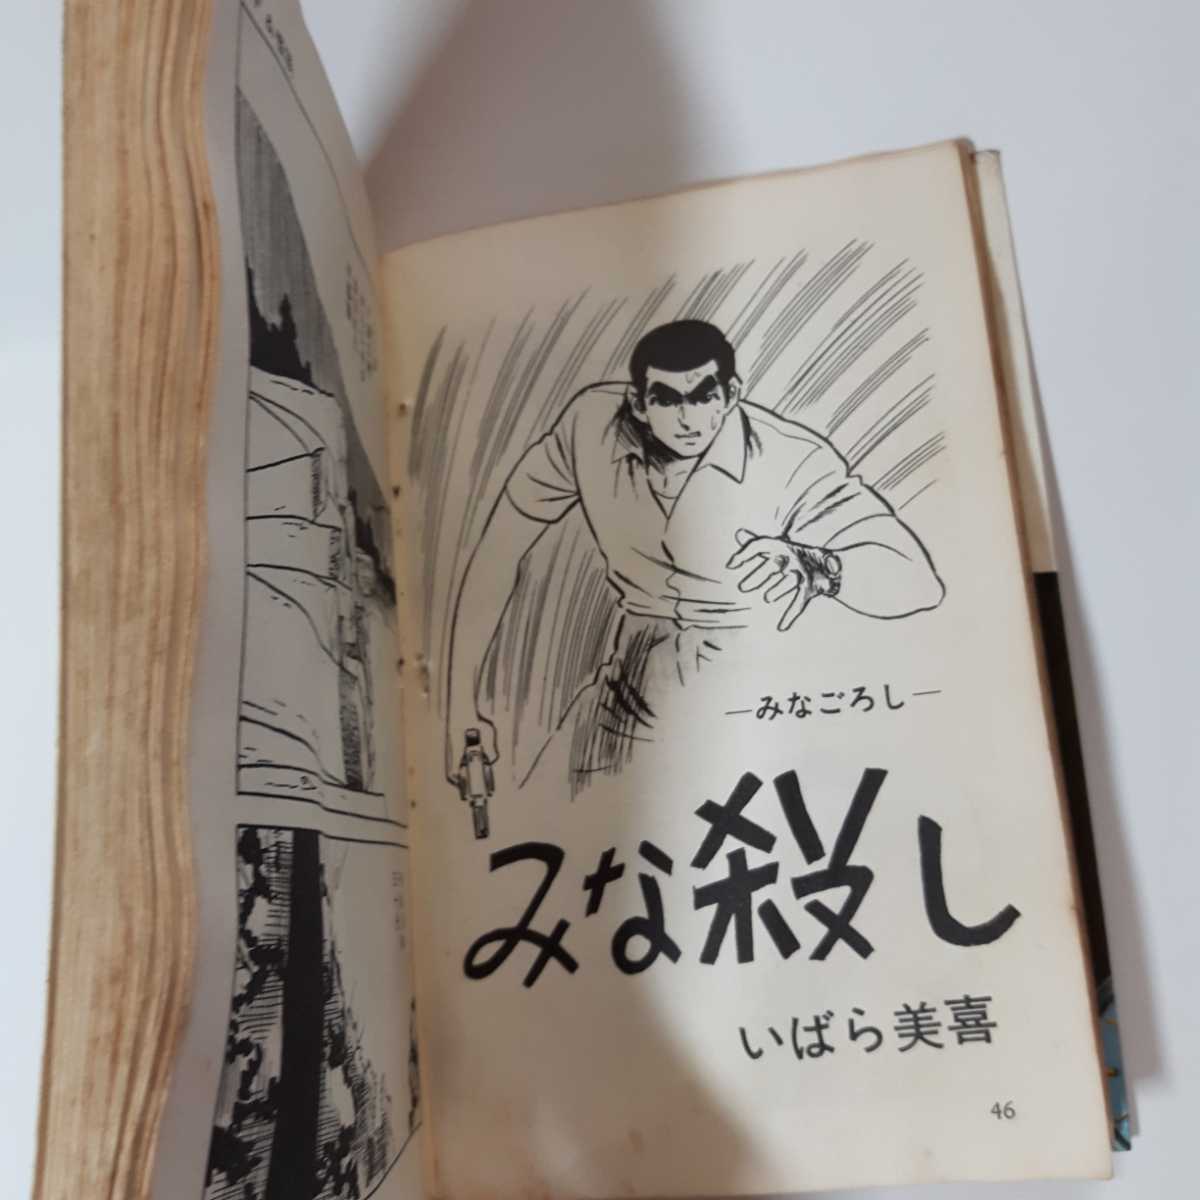 ―みなごろし―
みな殺し
いばら美喜
46